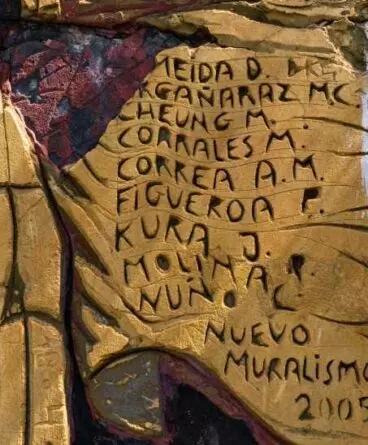 MEIDA D.
RGAÑARAZ M.C.
CHEUNG M.
CORRALES M.
CORREA A.M.
FIGUEROA F.
KURA J.
MOLINA P.
NUÑO C.
NUEVO
MURALISMO
2005